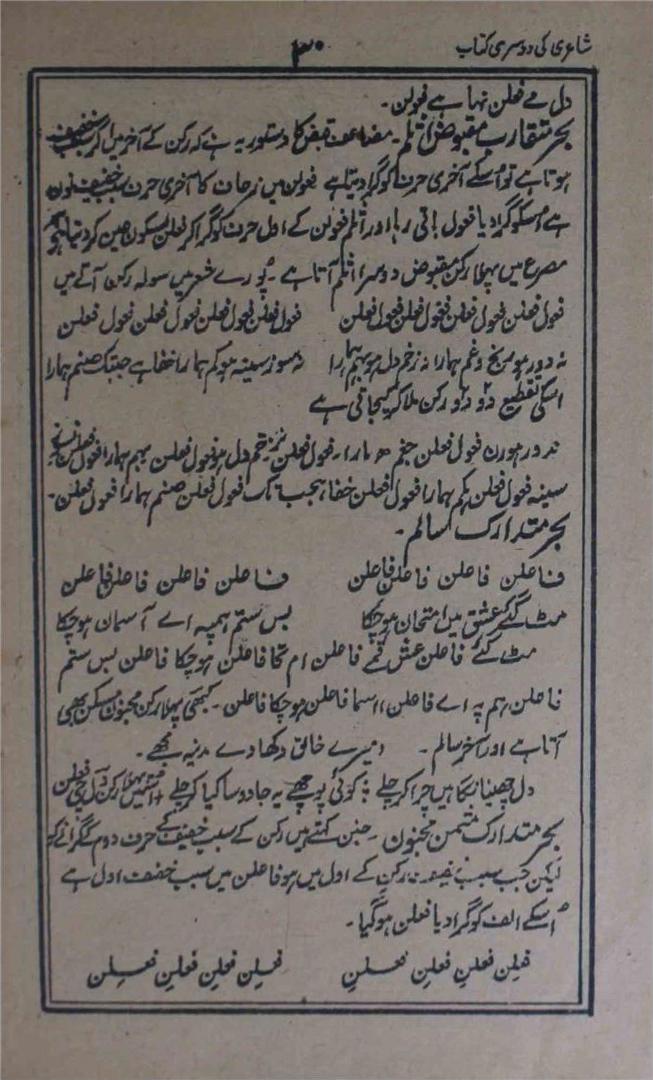 شاعری کی دوسری کتاب
۳۰
دل مے فعلن نہا ہے فعولن۔
بحر متقارب مقبوض اثلم۔ مضاعف قبض کا دستور یہ ہے کہ رکن کے آخر میں اگر سبب خفیف
ہوتا ہے تو اُسکے آخری حرف کو گرا دیتا ہے فعولن میں زحاف کا آخری حرف سبب خفیف نون
ہے اُسکو گرا دیا فعول باقی رہا اور اثلم فعولن کے اول حرف کو گرا کر فعلن بسکون عین کر دیتا ہے
مصرع میں پہلا رکن مقبوض دوسرا اثلم آتا ہے۔ پورے شعر میں سولہ رکن آتے ہیں
فعول فعلن فعول فعلن فعول فعلن فعول فعلن فعول فعلن فعول فعلن فعول فعلن فعول فعلن
نہ دور ہو رنج و غم ہمارا نہ زخم دل ہو بہم ہمارا نہ سوز سینہ ہو کم ہمارا خفا ہے جبتک صنم ہمارا
اسکی تقطیع دو دو رکن ملا کر کیجاتی ہے
ند در ہورن فعول فعلن جغم ہمارا۔ فعول فعلن نزخم دل ہو فعول فعلن بہم ہمارا فعول فعلن
سینہ فعول فعلن ہکم ہمارا فعول فعلن خفا ہجب تک فعول فعلن صنم ہمارا فعول فعلن۔
بحر متدارک سالم۔
فاعلن فاعلن فاعلن فاعلن فاعلن فاعلن فاعلن فاعلن
مٹ گئے عشق میں امتحان ہو چکا بس ستم ہمپہ اے آسمان ہو چکا
مٹ گئے فاعلن عش قمے فاعلن ام تحا فاعلن ہوچکا فاعلن بس ستم
فاعلن ہم پہ اے فاعلن ااسما فاعلن ہوچکا فاعلن۔ کبھی پہلا رکن مخبون مسکن بھی
آتا ہے اور آخر سالم۔ میرے خالق دکھا دے مدینہ مجھے۔
دل چھینا نگاہیں چرا کر چلے ؛ کوئی پوچھے یہ جادو سا کیا کر چلے اسمیں پہلا رکن دل چھی فعلن
بحر متدارک مثمن مخبون۔ خبن کہتے ہیں رکن کے سبب خفیف کے حرف دوم کے گرانے کو
لیکن جب سبب خفیف رکن کے اول میں ہو فاعلن میں سبب خفیف اول ہے
اُسکے الف کو گرا دیا فعلن ہو گیا۔
فعلن فعلن فعلن فعلن فعلن فعلن فعلن فعلن